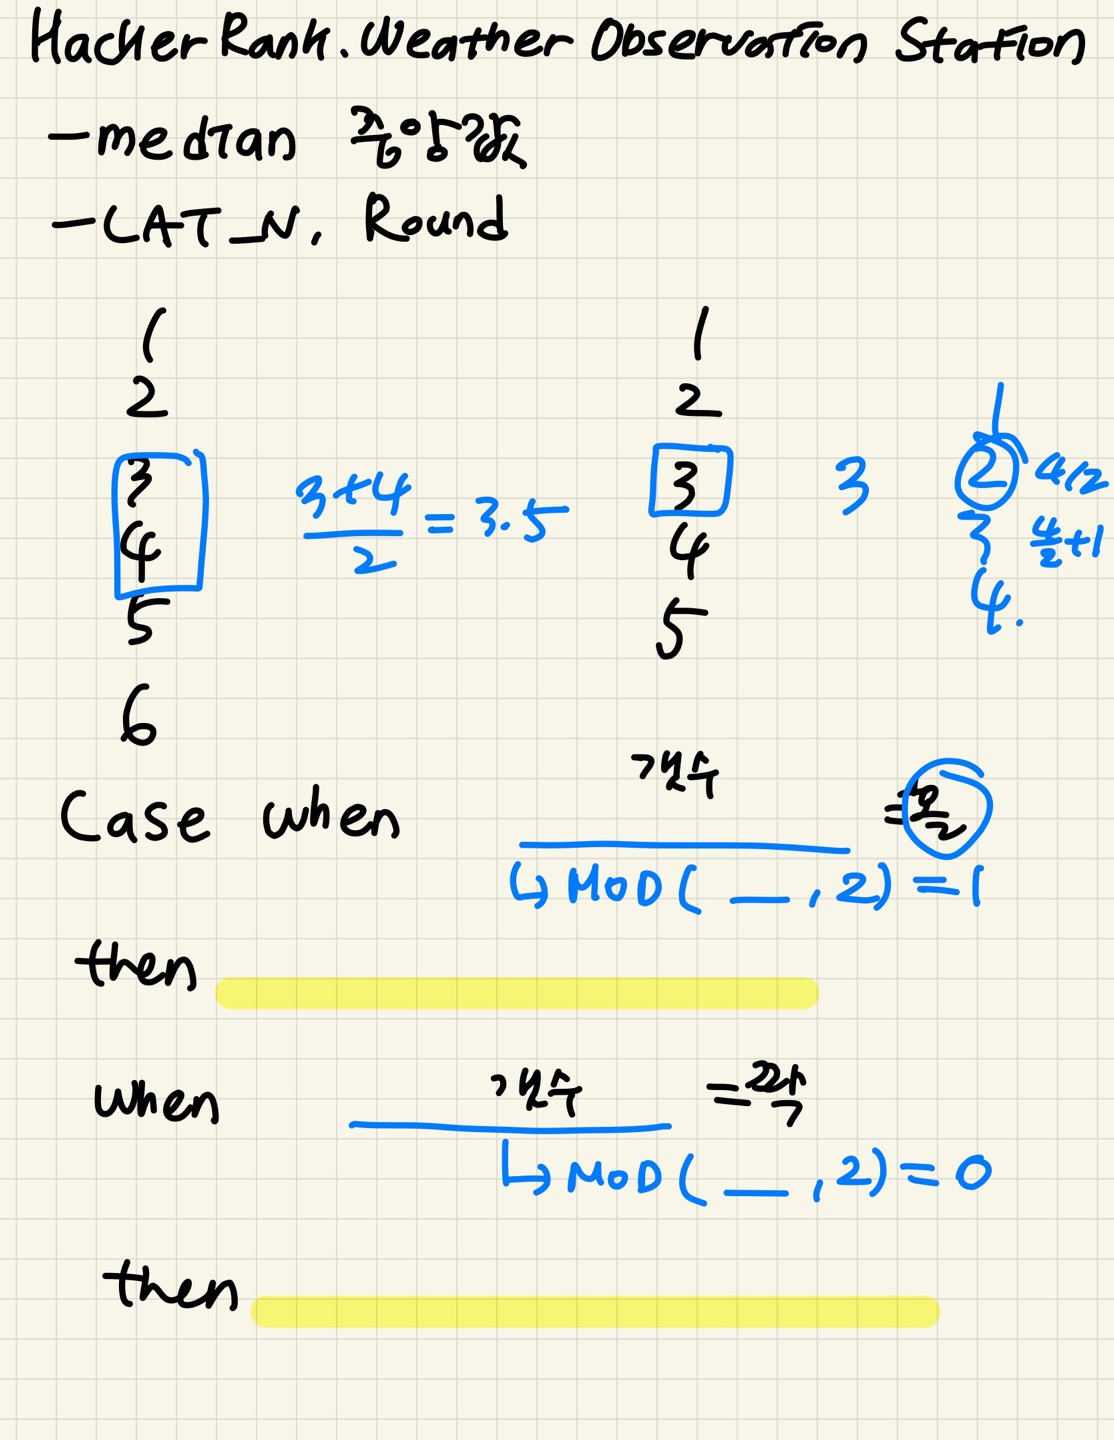 HackerRank. Weather Observation Station
- median 중앙값
- LAT_N, Round
1
2
3
4
5
6
3+4
2
= 3.5
1
2
3
4
5
3
1
2 4/2
3 4/2+1
4.
Case when 개수 =
↳ MOD( __ , 2) = 1
then
when 개수 = 짝수
↳ MOD( __ , 2) = 0
then